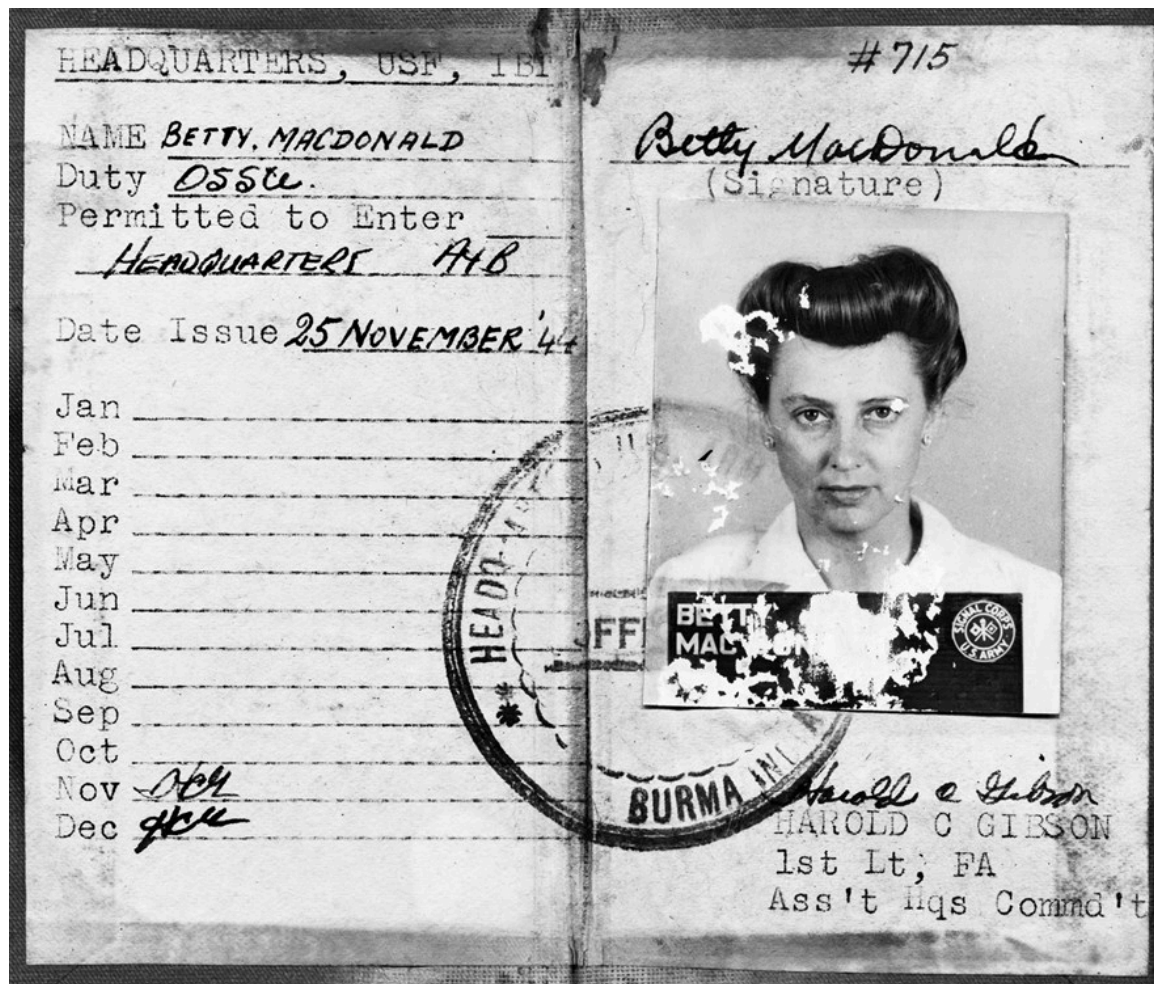 HEADQUARTERS, USF, IBT
NAME BETTY. MACDONALD
Duty
Permitted to Enter
HEADQUARTERS A+B
Date Issue 25 NOVEMBER '44
Jan
Feb
Mar
Apr
May
Jun
Jul
Aug
Sep
Oct
Nov HCG
Dec HCG
#715
Betty MacDonald
(Signature)
BETTY
MAC
SIGNAL CORPS
U.S. ARMY
HEADQ
OFFI
BURMA
Harold C Gibson
HAROLD C GIBSON
1st Lt, FA
Ass't Hqs Commd't